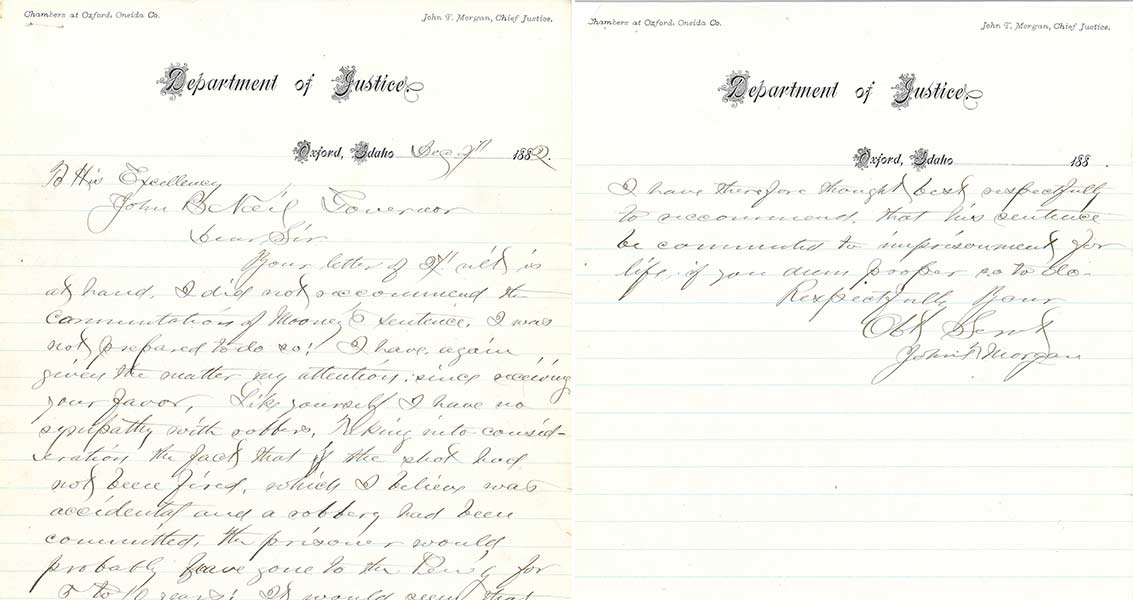 Chambers at Oxford, Oneida Co.
John T. Morgan, Chief Justice.
Department of Justice.
Oxford, Idaho 1882.
To His Excellency
John B Neil Governor
Dear Sir
Your letter of ult is
at hand. I did not reccommend the
commutation of Mooney's sentence. I was
not prepared to do so! I have again
given the matter my attention, since receiving
your favor, Like yourself I have no
sympathy with robbers. Taking into consid-
eration the fact that if the shot had
not been fired, which I believe was
accidental and a robbery had been
committed, the prisoner would
probably have gone to the Pen'y for
5 to 10 years! It would seem that
Chambers at Oxford, Oneida Co.
John T. Morgan, Chief Justice.
Department of Justice.
Oxford, Idaho 188 .
I have therefore thought best respectfully
to reccommend, that his sentence
be commuted to imprisonment for
life, if you deem proper so to do.
Respectfully Your
Obt Servt
John T Morgan